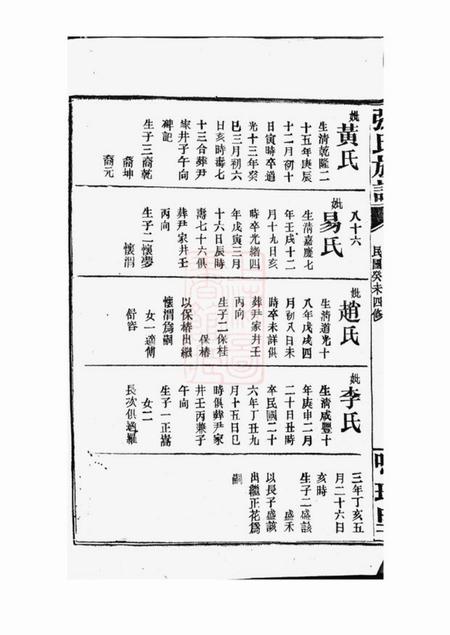 張氏族譜
民國癸未四修
妣黃氏
生清乾隆二
十五年庚辰
十二月初十
日寅時卒道
光十三年癸
巳三月初六
日亥時壽七
十三合葬尹
家井子午向
碑記
生子三裔乾
裔坤
裔元
八十六
妣易氏
生清嘉慶七
年壬戌十二
月十九日亥
時卒光緒四
年戊寅三月
十六日辰時
壽七十六俱
葬尹家井壬
丙向
生子二懷夢
懷渭
妣趙氏
生清道光十
八年戊戌四
月初八日未
時卒未詳俱
葬尹家井壬
丙向
生子二保桂
保椿
以保椿出繼
懷渭爲嗣
女一適傅
舒容
妣李氏
生清咸豐十
年庚申二月
二十日丑時
卒民國二十
六年丁丑九
月十五日巳
時俱葬尹家
井壬丙兼子
午向
生子一正嵩
女二
長次俱適羅
三年丁亥五
月二十六日
亥時
生子二盛該
盛禾
以長子盛該
出繼正花爲
嗣